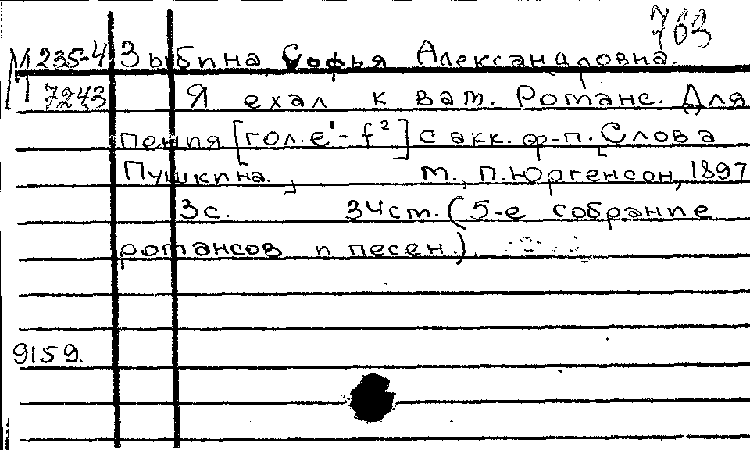 763
М 235-4 Зыбина Софья Александровна.
7243 Я ехал к вам. Романс. Для
пения [гол. e¹-f²] с акк. ф-п. Слова
Пушкина. М., П. Юргенсон, 1897
3с. 34см. (5-е собрание
романсов и песен.)
9159.